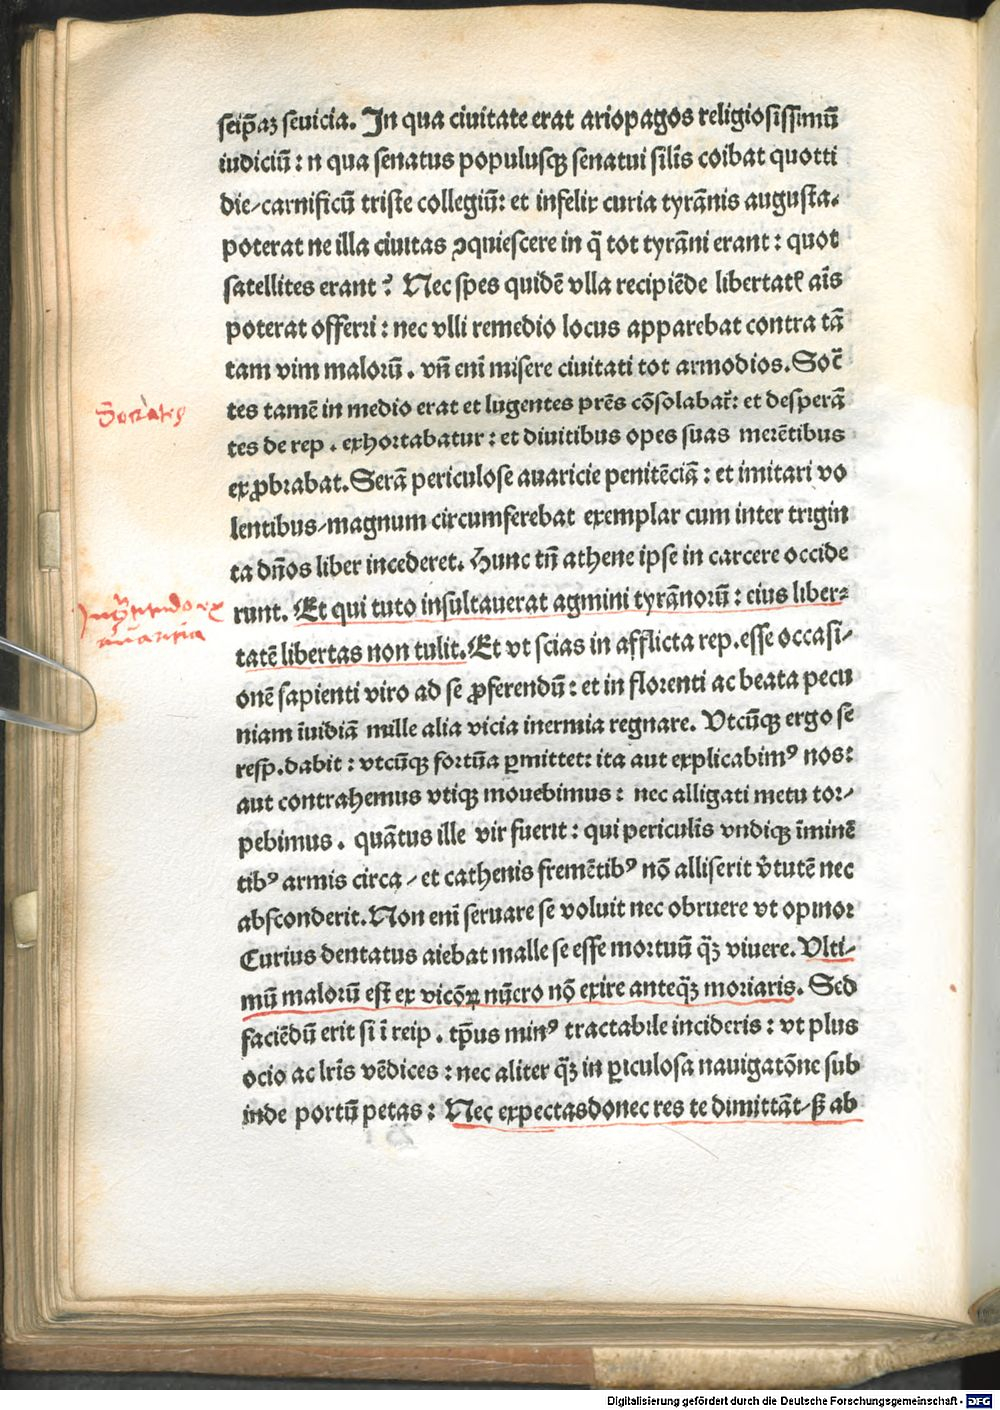 seip̄aꝫ seuicia. In qua ciuitate erat ariopagos religiosissimū
iudiciū: n qua senatus populusqꝫ senatui sil̄is coibat quotti
die/carnificū triste collegiū: et infelix curia tyrānis augusta.
poterat ne illa ciuitas ↄquiescere in q̄ tot tyrāni erant: quot
satellites erant? Nec spes quidē vlla recipiēde libertatꝭ ais̄
poterat offerri: nec vlli remedio locus apparebat contra tā
tam vim maloꝛū. vn̄ eni̅ misere ciuitati tot armodios. Soc̄
tes tamē in medio erat et lugentes pr̄es cōsolabat᷑: et desperā
tes de rep. exhoꝛtabatur: et diuitibus opes suas merētibus
exꝓbꝛabat. Serā periculose auaricie penitēciā: et imitari vo
lentibus/magnum circumferebat exemplar cum inter trigin
ta dn̄os liber incederet. Hunc tn̄ athene ipse in carcere occide
runt. Et qui tuto insultauerat agmini tyrānoꝛū: eius liber⸗
tatē libertas non tulit. Et vt scias in afflicta rep. esse occasi/
onē sapienti viro ad se ꝓferendū: et in florenti ac beata pecu
niam īuidiā mille alia vicia inermia regnare. Vtcūqꝫ ergo se
resp̄. dabit: vtcūqꝫ foꝛtūa ꝑmittet: ita aut explicabimꝰ nos:
aut contrahemus vtiqꝫ mouebimus: nec alligati metu toꝛ/
pebimus. quātus ille vir fuerit: qui periculis̄ vndiqꝫ īminē
tibꝰ armis circa / et cathenis fremētibꝰ nō alliserit v̄tutē nec
absconderit. Non eni̅ seruare se voluit nec obruere vt opinoꝛ
Curius dentatus aiebat malle se esse moꝛtuū qꝫ̄ viuere. Vlti⸗
mū maloꝛū est̄ ex vicōꝝ nūcro nō exire anteqꝫ̄ moriaris. Sed
faciēdū erit si ī reip. tp̄us minꝰ tractabile incideris: vt plus
ocio ac lr̄is vēdices: nec aliter qꝫ̄ in ꝑiculosa nauigatōne sub
inde poꝛtū petas: Nec expectasdonec res te dimittāt/ꝭ ab
Socrates
auaritia
Digitalisierung gefördert durch die Deutsche Forschungsgemeinschaft - DFG